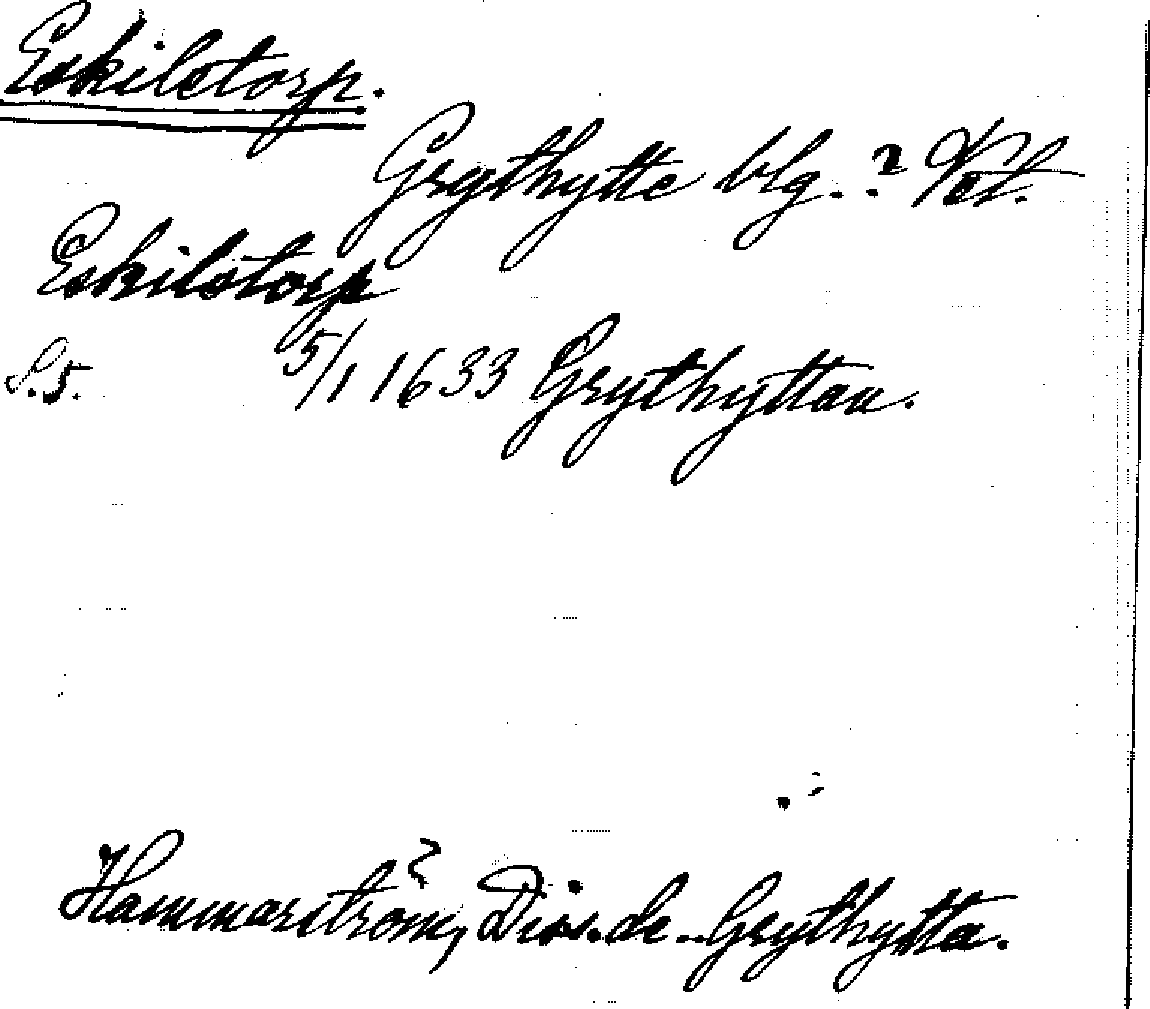 Eskilstorp.
Grythytte blg. ? Vst.
Eskilstorp
S. 5. 5/1 1633 Grythyttan.
Hammarström, Diss. de Grythytta.